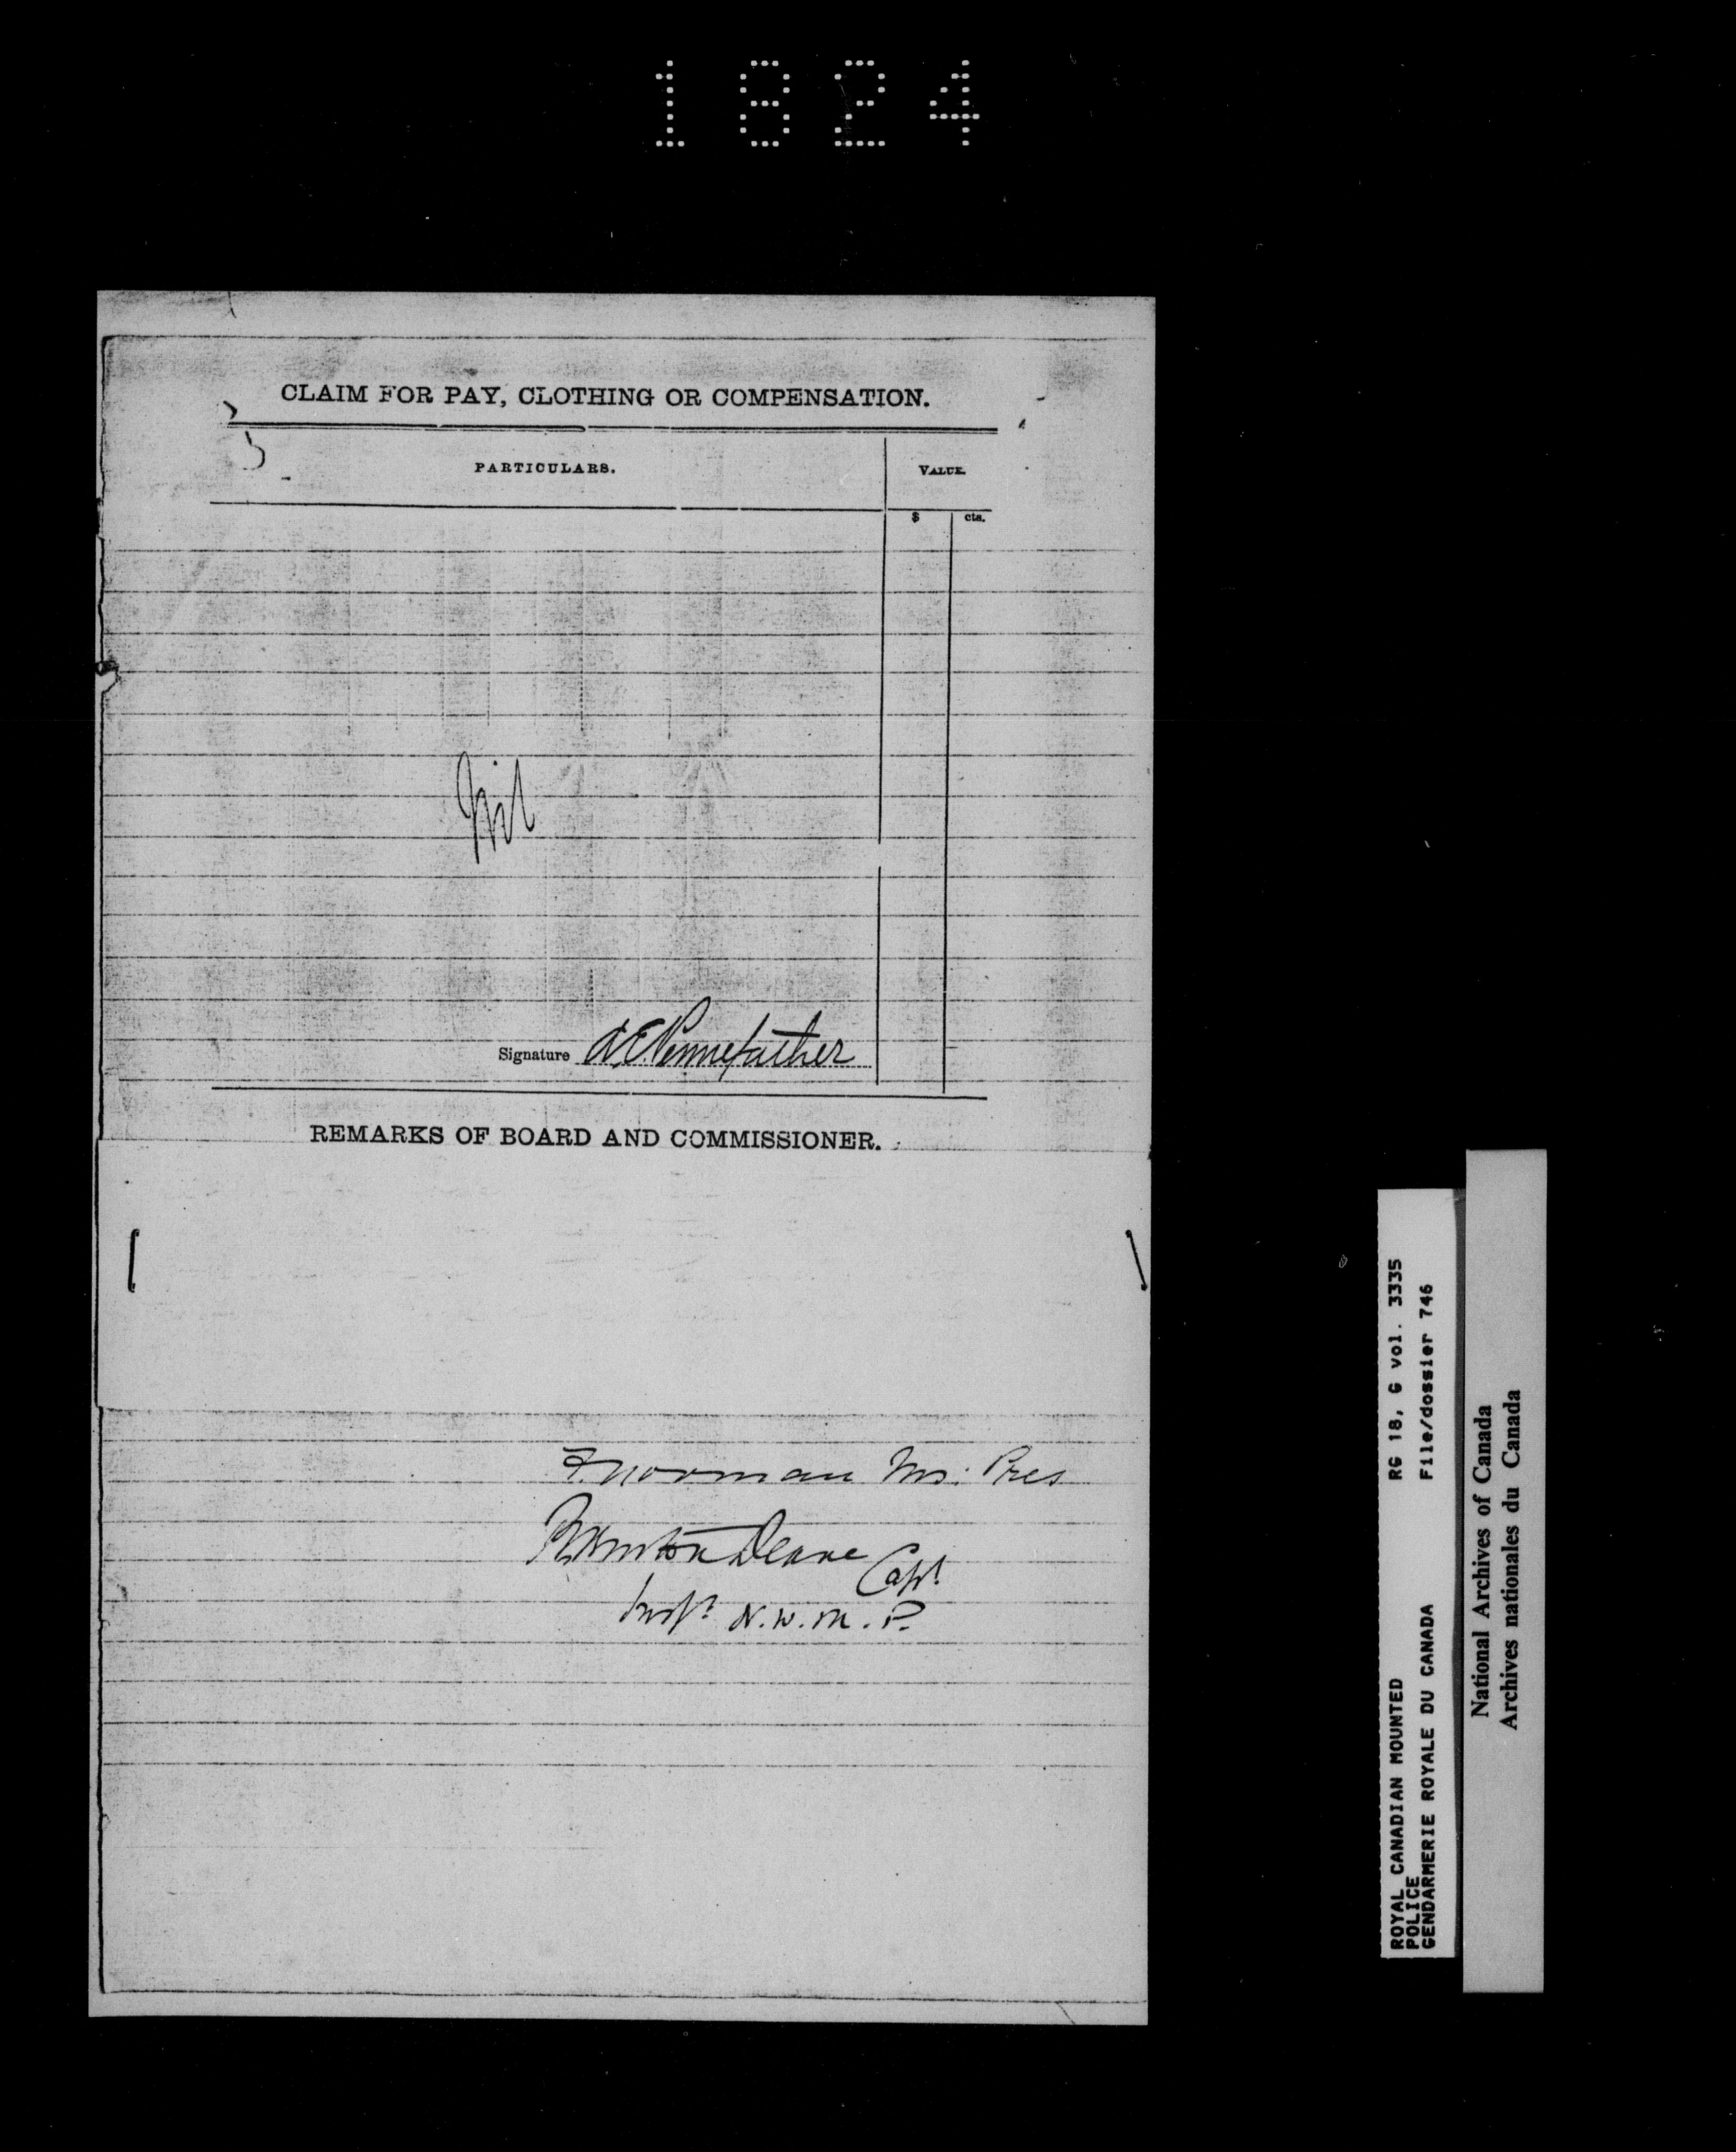 1824
CLAIM FOR PAY, CLOTHING OR COMPENSATION.
PARTICULARS.
VALUE.
$ cts.
Nil
Signature A.E. Pennefather
REMARKS OF BOARD AND COMMISSIONER.
F. Norman Pres
R Burton Deane Capt.
Inspr. N.W.M.P.
RG 18, G vol. 3335
File/dossier 746
ROYAL CANADIAN MOUNTED
POLICE
GENDARMERIE ROYALE DU CANADA
National Archives of Canada
Archives nationales du Canada